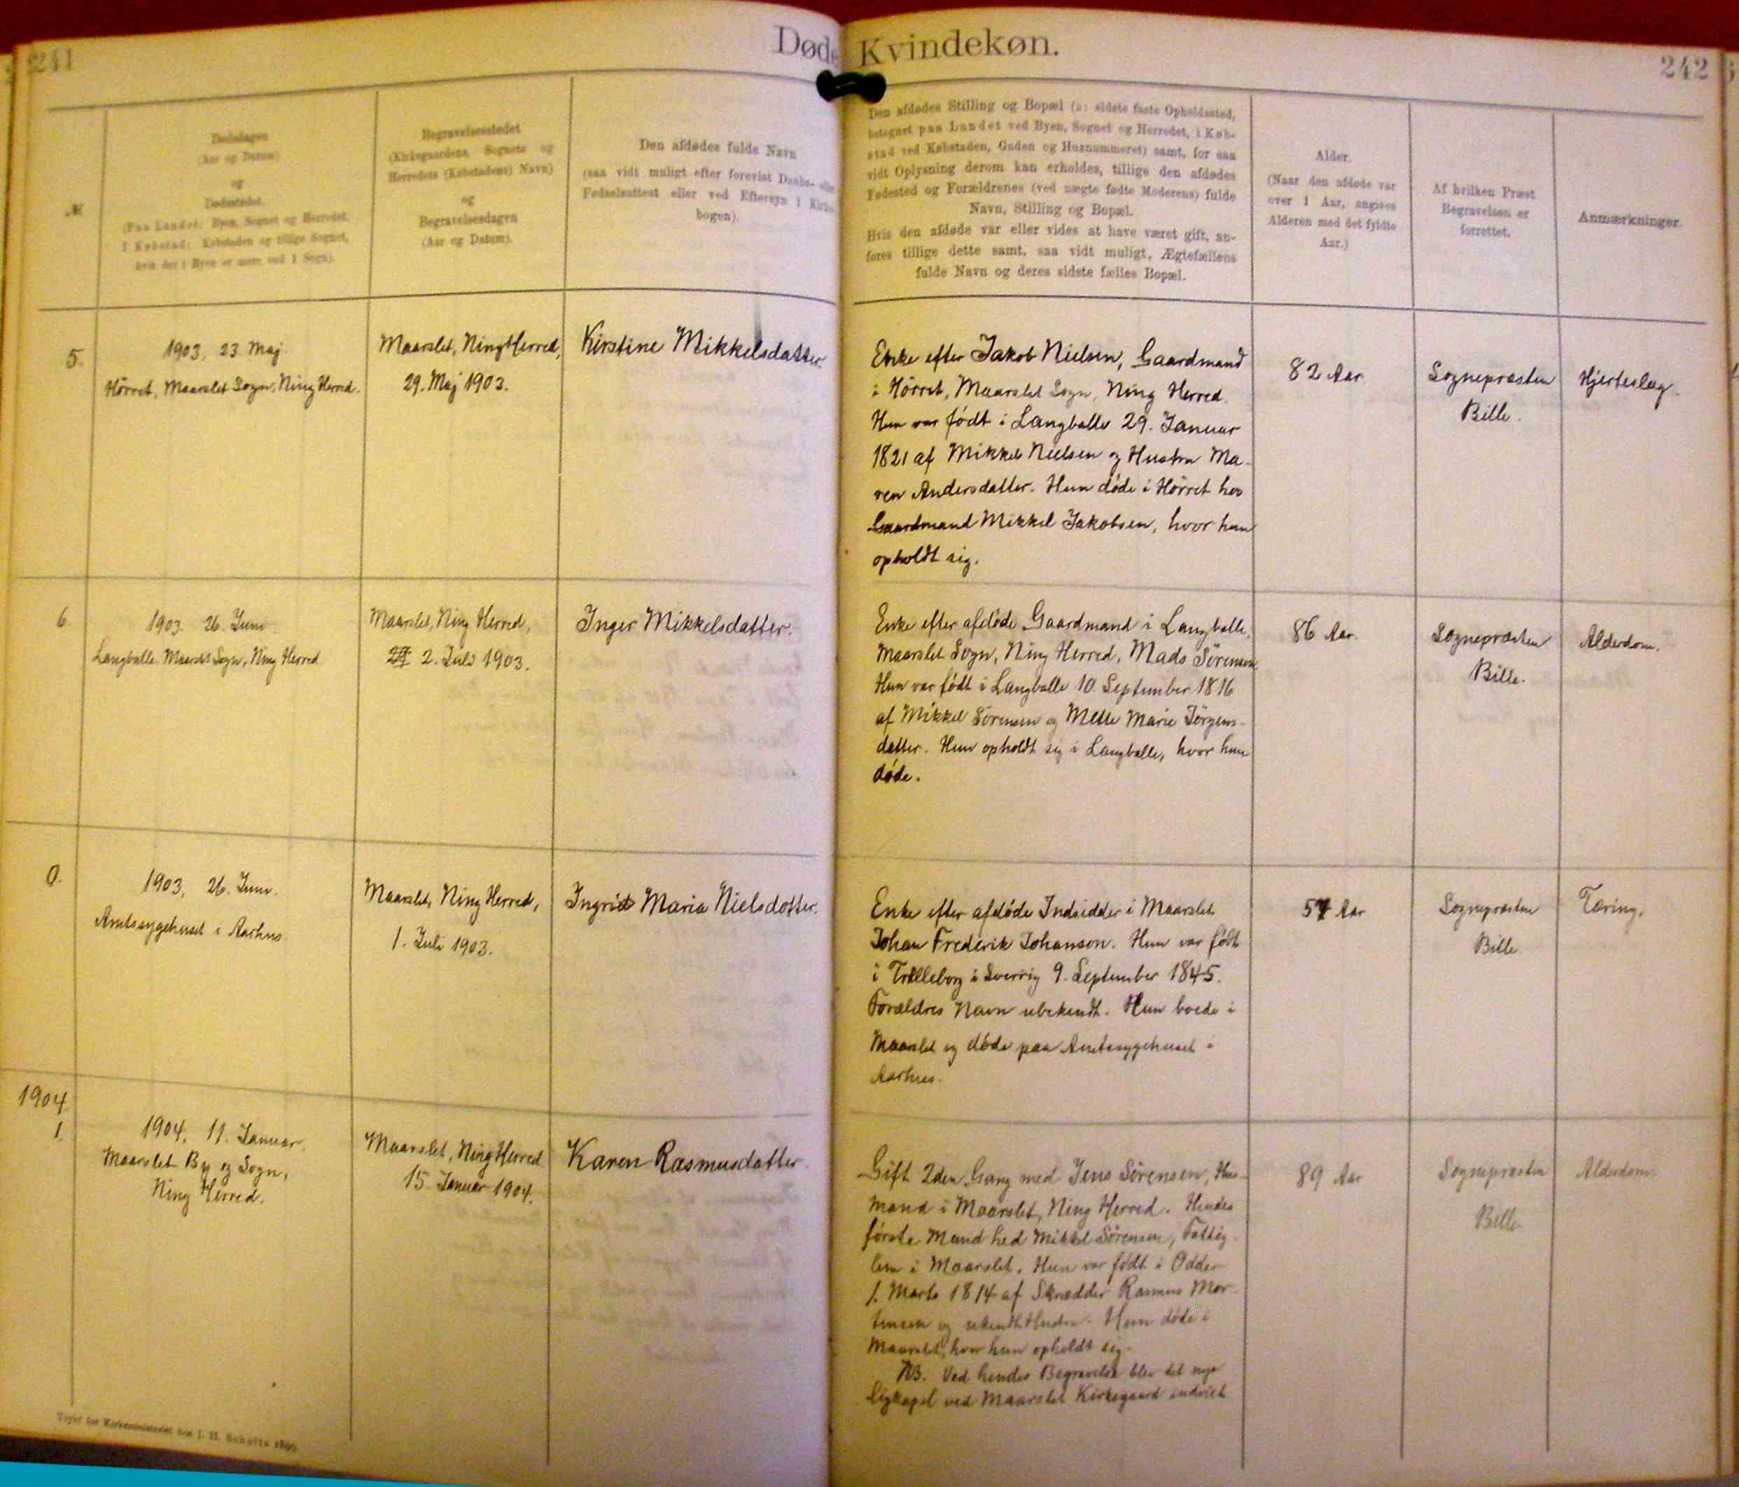 241
Døde Kvindekøn.
242
№
Dødsdagen
(Aar og Datum)
og
Dødsstedet.
(Paa Landet: Byen, Sognet og Herredet.
I Købstad: Købstaden og tillige Sognet,
hvis der i Byen er mere end 1 Sogn).
Begravelsesstedet
(Kirkegaardens, Sognets og
Herredets (Købstadens) Navn)
og
Begravelsesdagen
(Aar og Datum).
Den afdødes fulde Navn
(saa vidt muligt efter forevist Daabs- eller
Fødselsattest eller ved Eftersyn i Kirke-
bogen).
Den afdødes Stilling og Bopæl (ɔ: sidste faste Opholdssted,
betegnet paa Landet ved Byen, Sognet og Herredet, i Køb-
stad ved Købstaden, Gaden og Husnummeret) samt, for saa
vidt Oplysning derom kan erholdes, tillige den afdødes
Fødested og Forældrenes (ved uægte fødte Moderens) fulde
Navn, Stilling og Bopæl.
Hvis den afdøde var eller vides at have været gift, an-
føres tillige dette samt, saa vidt muligt, Ægtefællens
fulde Navn og deres sidste fælles Bopæl.
Alder.
(Naar den afdøde var
over 1 Aar, angives
Alderen med det fyldte
Aar.)
Af hvilken Præst
Begravelsen er
forrettet.
Anmærkninger.
5.
1903, 23. Maj
Hörret, Maarslet Sogn, Ning Herred.
Maarslet, Ning Herred,
29. Maj 1903.
Kirstine Mikkelsdatter.
Enke efter Jakob Nielsen, Gaardmand
i Hörret, Maarslet Sogn, Ning Herred.
Hun var født i Langballe 29. Januar
1821 af Mikkel Nielsen og Hustru Ma-
ren Andersdatter. Hun døde i Hörret hos
Gaardmand Mikkel Jakobsen, hvor hun
opholdt sig.
82 Aar
Sognepræsten
Bille.
Hjerteslag.
6
1903. 26. Juni
Langballe. Maarslet Sogn, Ning Herred
Maarslet, Ning Herred,
2. Juli 1903.
Inger Mikkelsdatter.
Enke efter afdøde Gaardmand i Langballe,
Maarslet Sogn, Ning Herred, Mads Sörensen.
Hun var født i Langballe 10. September 1816
af Mikkel Sörensen og Mette Marie Jörgens-
datter. Hun opholdt sig i Langballe, hvor hun
døde.
86 Aar.
Sognepræsten
Bille.
Alderdom.
0.
1903, 26. Juni.
Amtssygehuset i Aarhus.
Maarslet, Ning Herred,
1. Juli 1903.
Ingrid Maria Nielsdotter.
Enke efter afdøde Indsidder i Maarslet
Johan Frederik Johanson. Hun var født
i Trælleborg i Sverrig 9. September 1845.
Forældres Navn ubekendt. Hun boede i
Maarslet og døde paa Amtssygehuset i
Aarhus.
57 Aar
Sognepræsten
Bille
Tæring.
1904.
1.
1904, 11. Januar.
Maarslet By og Sogn,
Ning Herred.
Maarslet, Ning Herred
15. Januar 1904.
Karen Rasmusdatter.
Gift 2den Gang med Jens Sørensen, Hus-
mand i Maarslet, Ning Herred. Hendes
første Mand hed Mikkel Sørensen, Fattig-
lem i Maarslet. Hun var født i Odder
1. Marts 1814 af Skrædder Rasmus Mor-
tensen og ukendt Hustru. Hun døde i
Maarslet, hvor hun opholdt sig.
NB. Ved hendes Begravelse blev det nye
Ligkapel ved Maarslet Kirkegaard indviet
89 Aar
Sognepræsten
Bille
Alderdom
Trykt for Kirkeministeriet hos J. H. Schultz